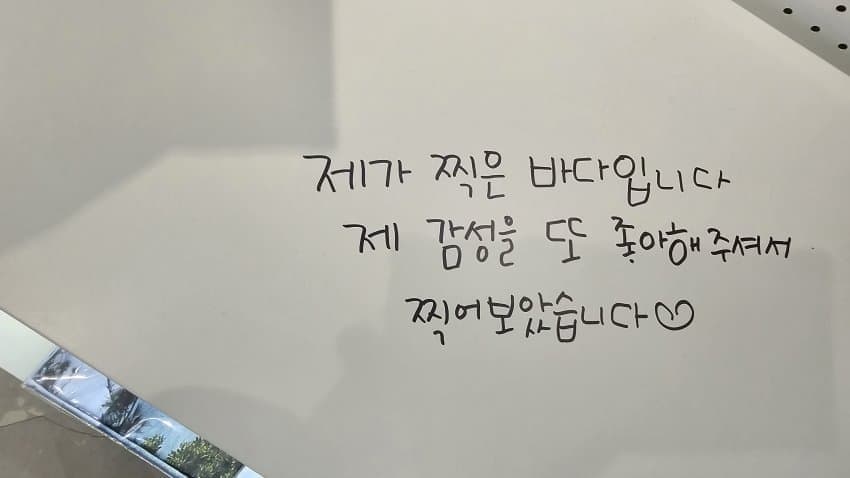 제가 찍은 바다입니다
제 감성을 또 좋아해주셔서
찍어보았습니다♡